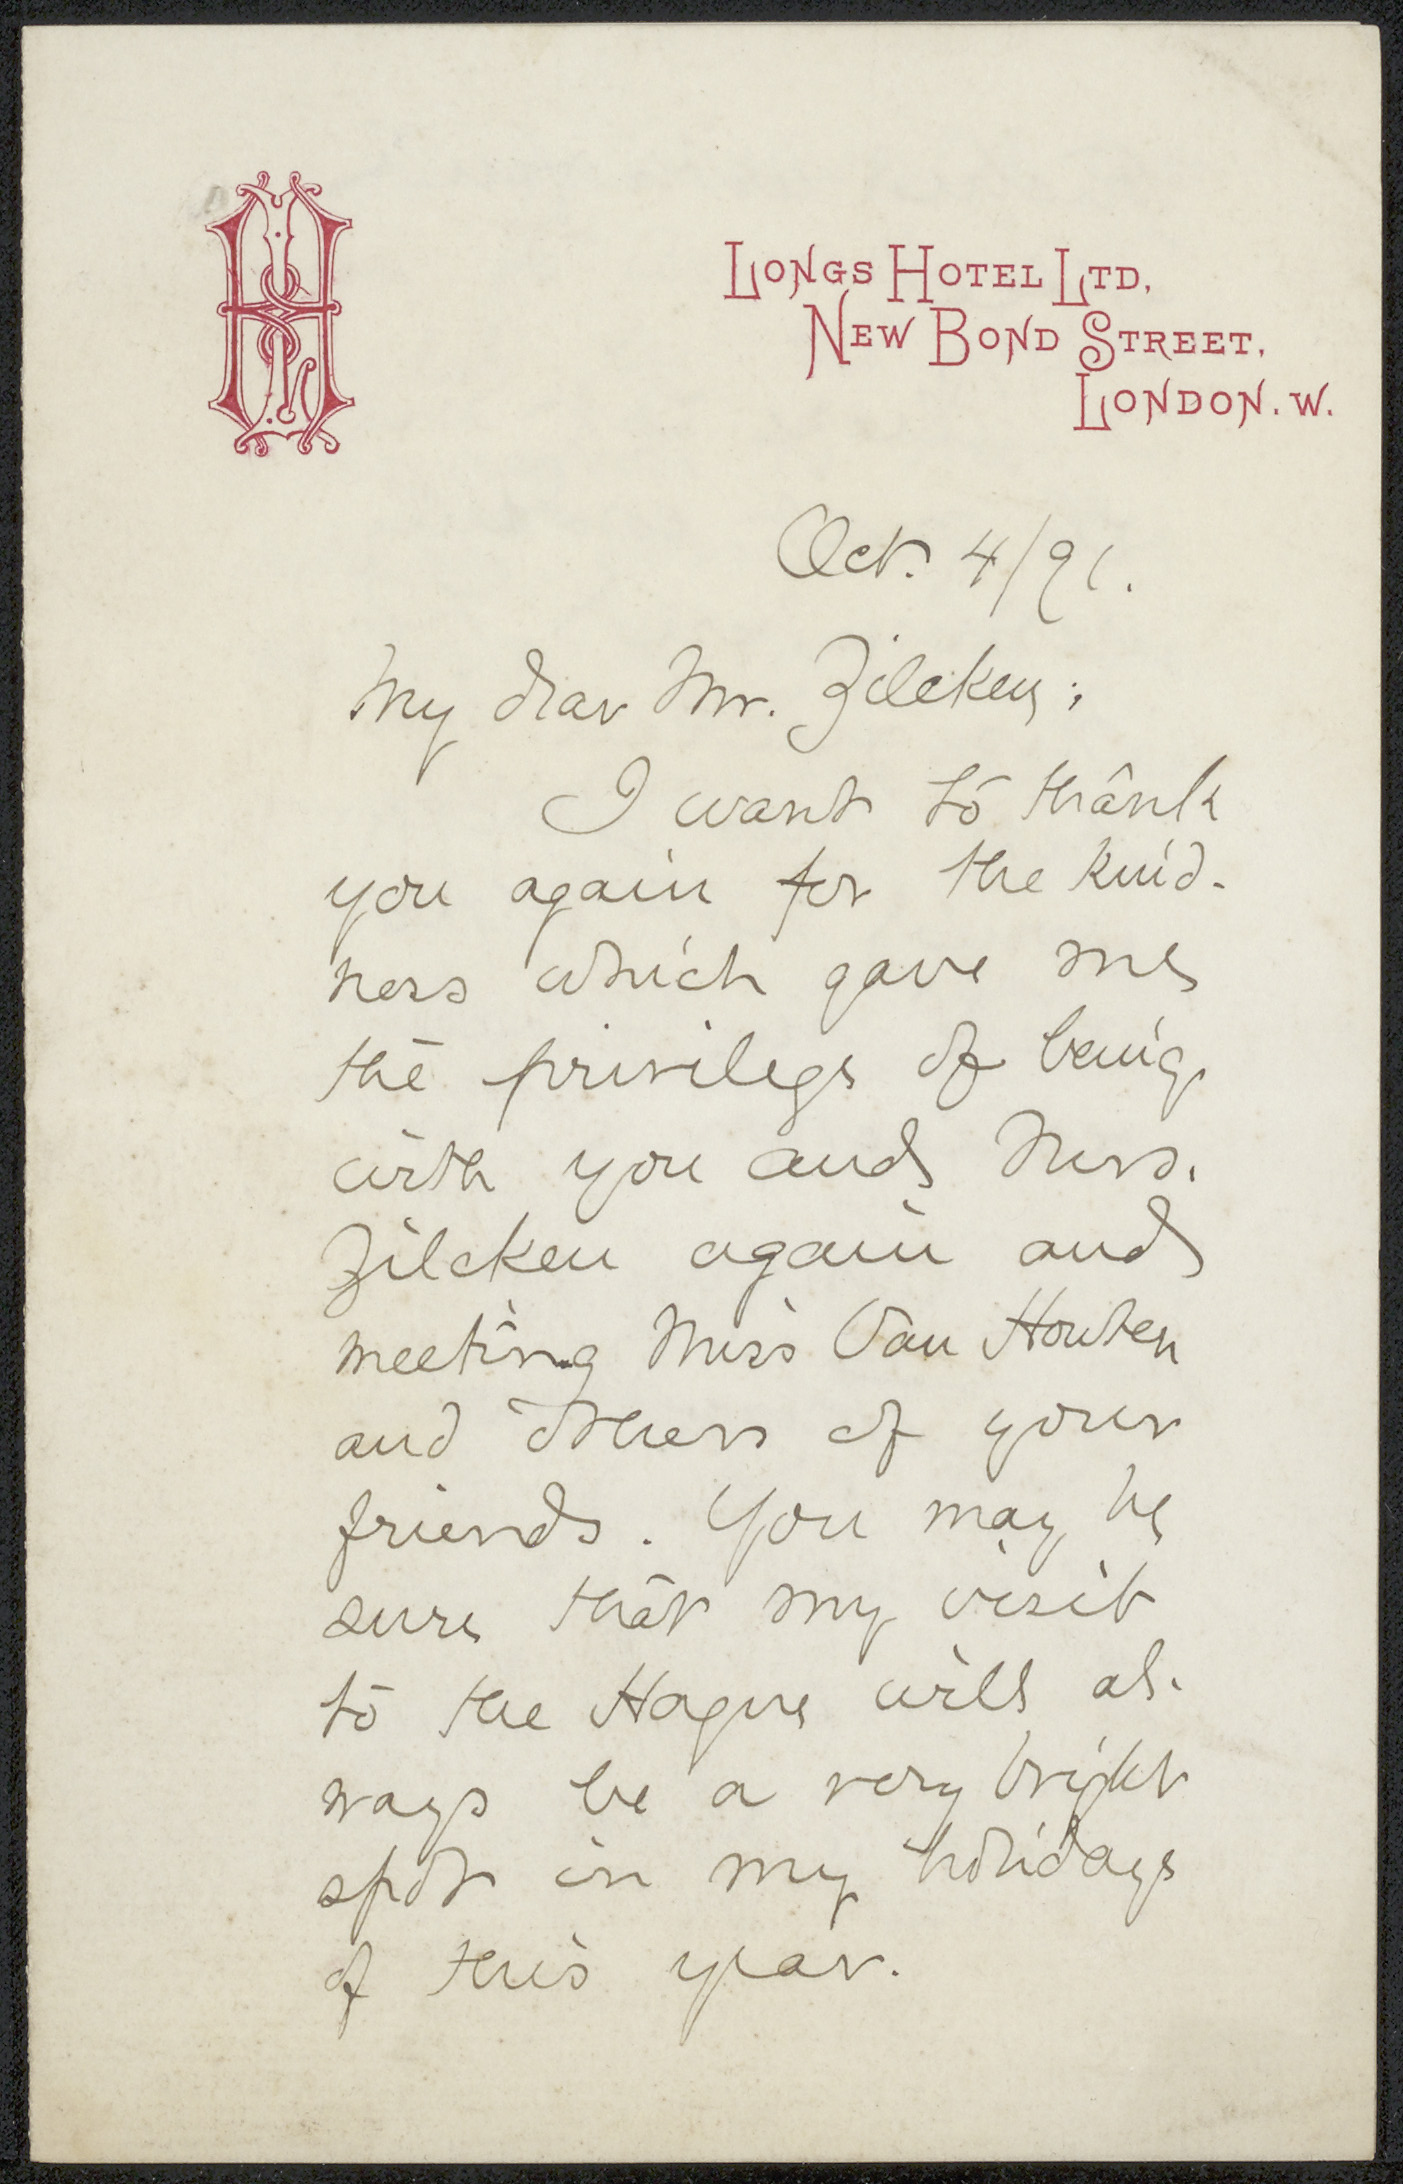 LONGS HOTEL LTD,
NEW BOND STREET,
LONDON. W.
Oct. 4/91.
My dear Mr. Zilcken;
I want to thank
you again for the kind-
ness which gave me
the privilege of being
with you and Mrs.
Zilcken again and
meeting Miss Van Houten
and others of your
friends. You may be
sure that my visit
to the Hague will al-
ways be a very bright
spot in my holidays
of this year.